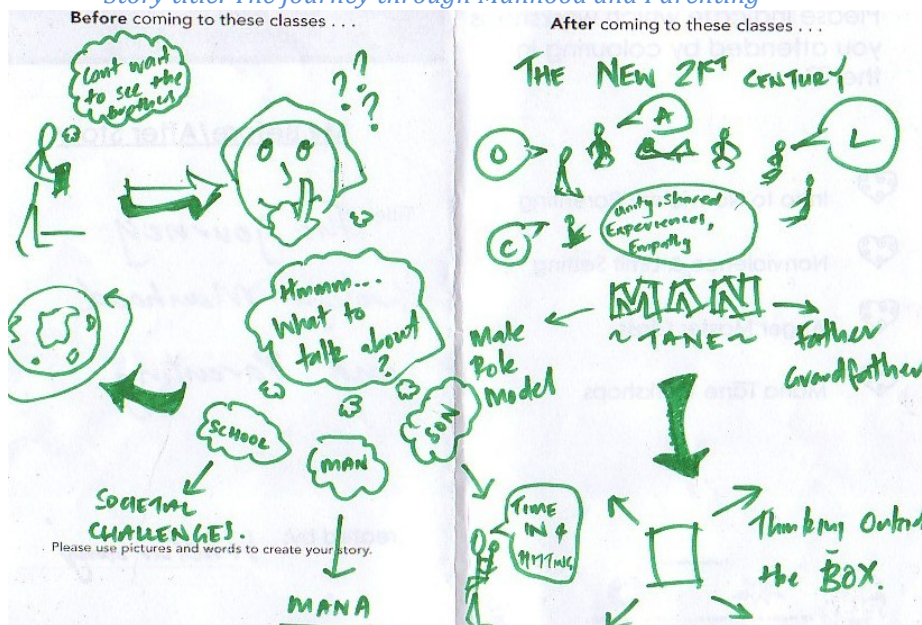 Story title: The journey through Manhood and Parenting
Before coming to these classes . . .
Cant wait
to see the
brothers
???
Hmmm...
What to
talk about
?
SCHOOL
MAN
SON
SOCIETAL
CHALLENGES.
Please use pictures and words to create your story.
MANA
After coming to these classes . . .
THE NEW 21ST CENTURY
O
A
L
C
Unity, Shared
Experiences,
Empathy
MAN
~TANE~
Male
Role
Model
Father
Grandfather
TIME
IN 4
Thinking Outside
the BOX.